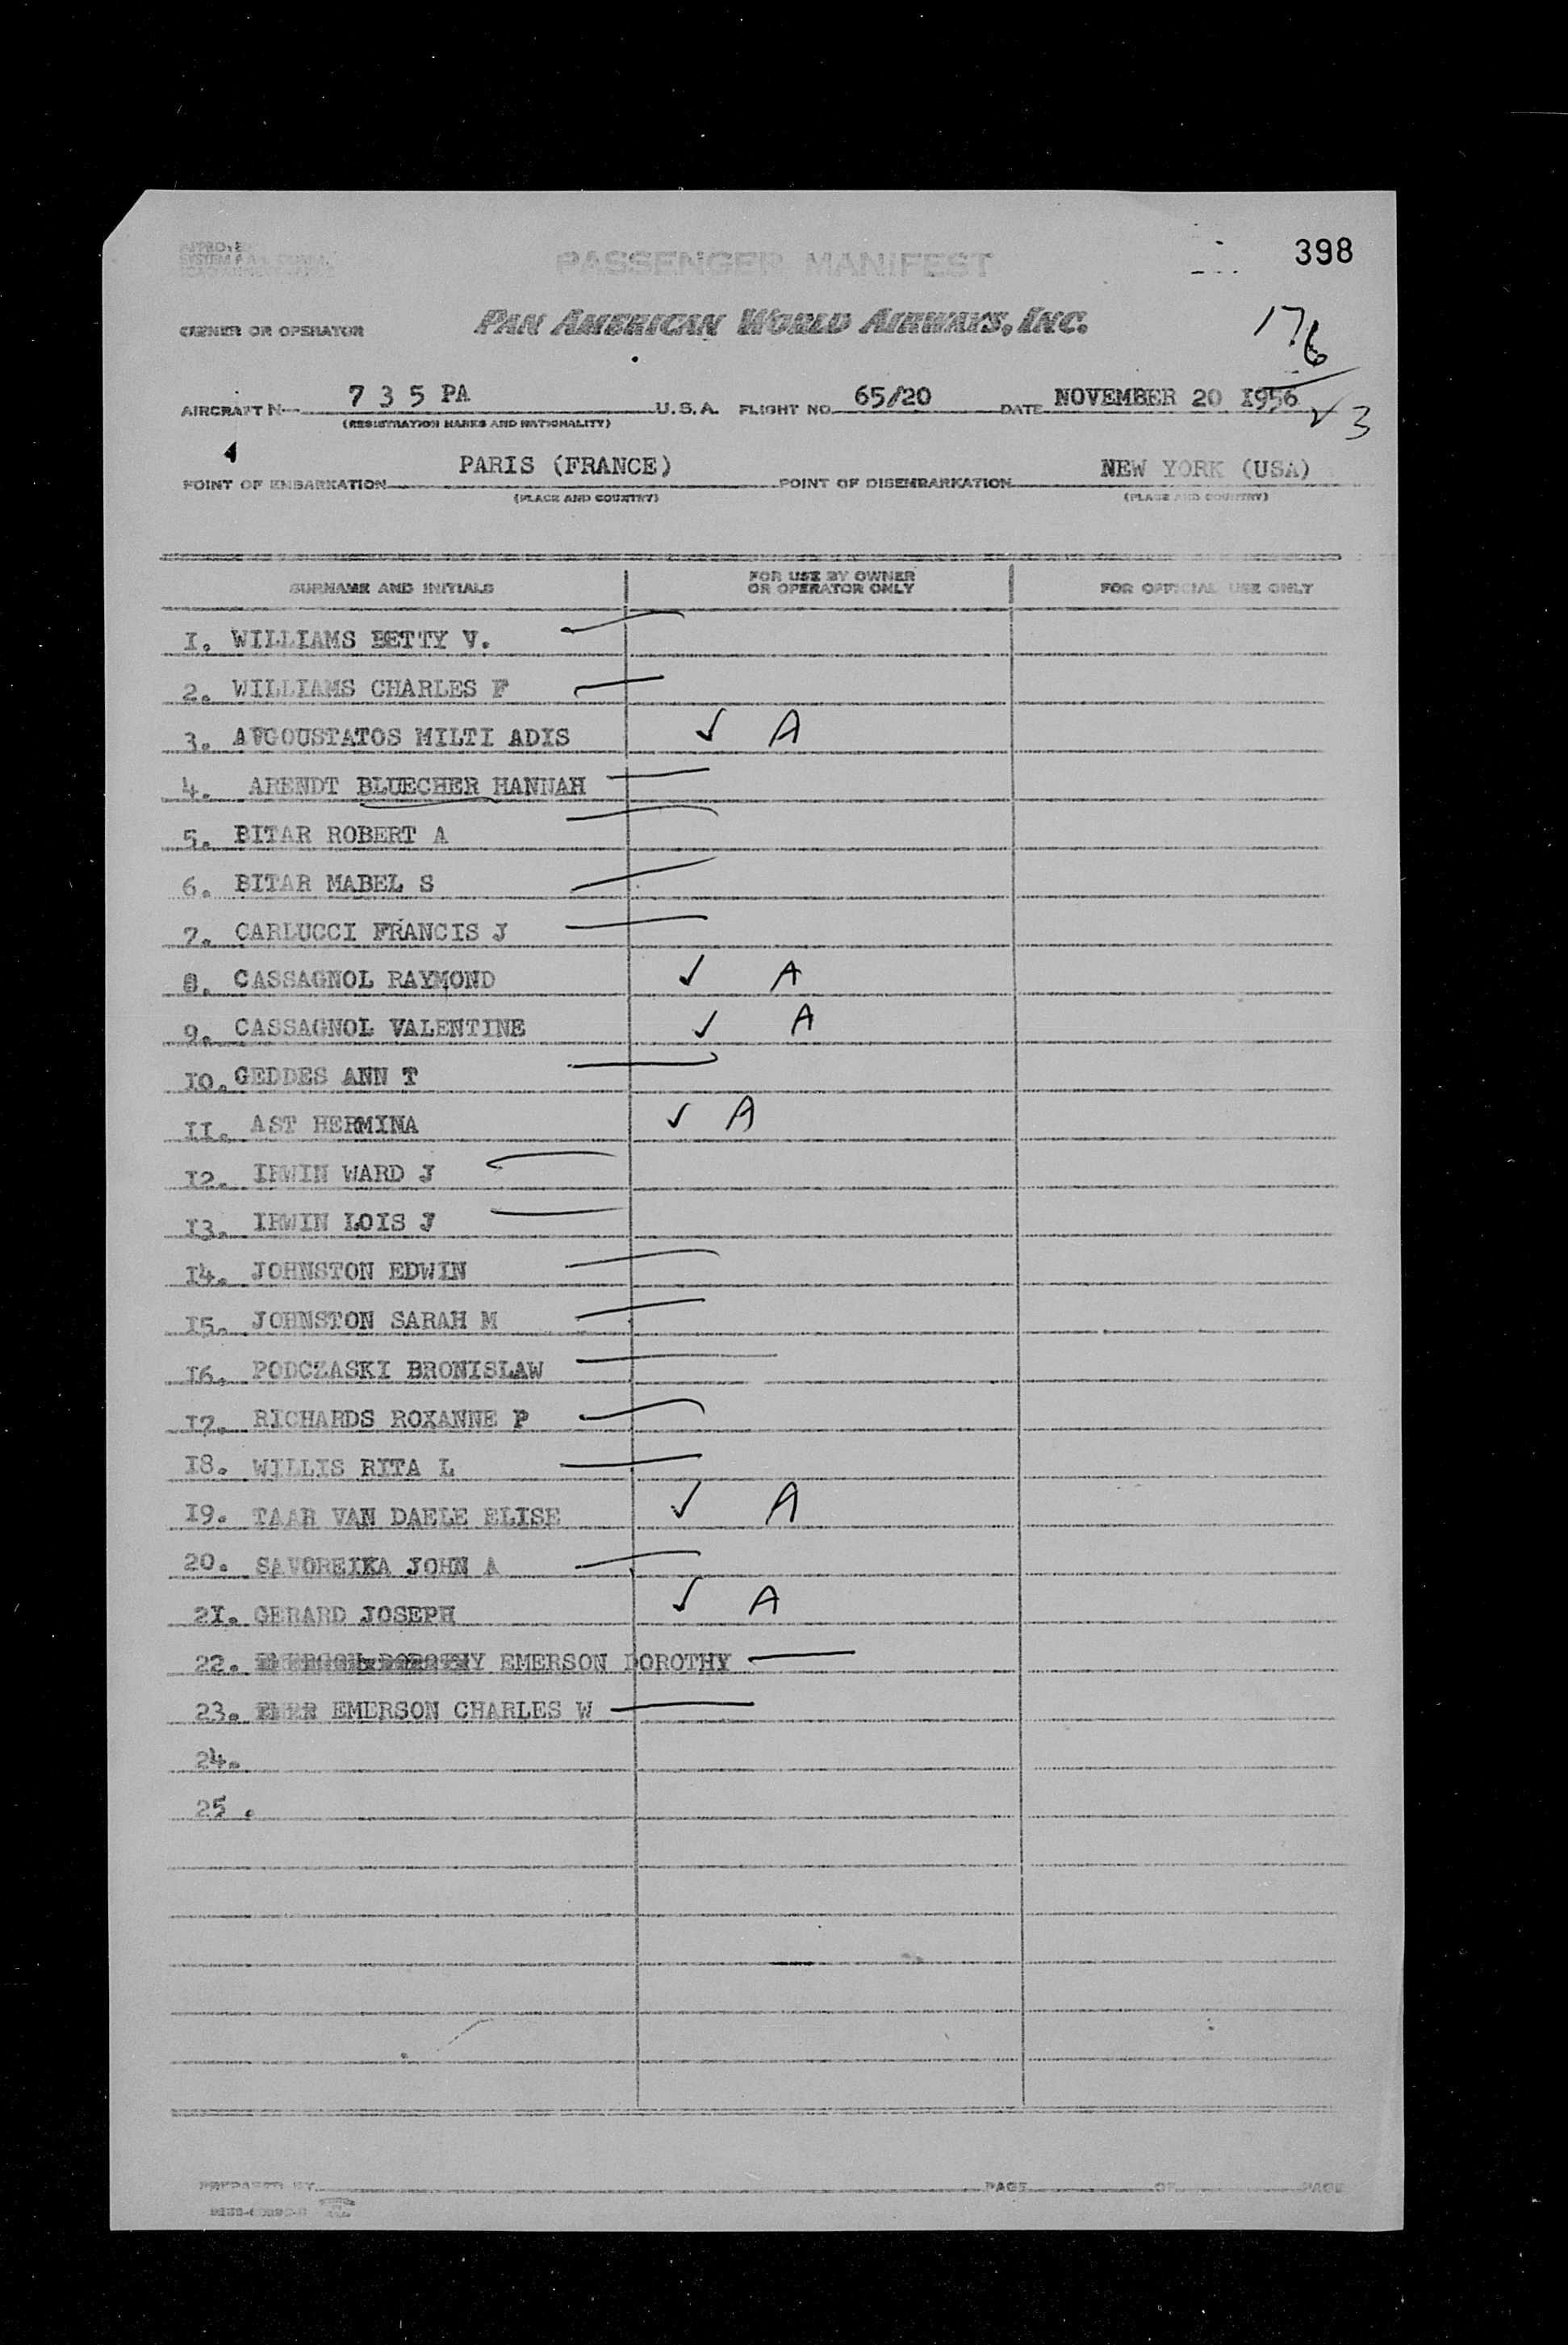 398
PASSENGER MANIFEST
OWNER OR OPERATOR PAN AMERICAN WORLD AIRWAYS, INC.
176
AIRCRAFT N 7 3 5 PA U.S.A. FLIGHT NO. 65/20 DATE NOVEMBER 20 1956
(REGISTRATION MARKS AND NATIONALITY)
3
POINT OF EMBARKATION PARIS (FRANCE) POINT OF DISEMBARKATION NEW YORK (USA)
(PLACE AND COUNTRY) (PLACE AND COUNTRY)
SURNAME AND INITIALS FOR USE BY OWNER OR OPERATOR ONLY FOR OFFICIAL USE ONLY
1. WILLIAMS BETTY V.
2. WILLIAMS CHARLES F
3. AVGOUSTATOS MILTI ADIS ✓ A
4. ARENDT BLUECHER HANNAH
5. BITAR ROBERT A
6. BITAR MABEL S
7. CARLUCCI FRANCIS J
8. CASSAGNOL RAYMOND ✓ A
9. CASSAGNOL VALENTINE ✓ A
10. GEDDES ANN T
11. AST HERMINA ✓ A
12. IRWIN WARD J
13. IRWIN LOIS J
14. JOHNSTON EDWIN
15. JOHNSTON SARAH M
16. PODCZASKI BRONISLAW
17. RICHARDS ROXANNE P
18. WILLIS RITA L
19. TAAR VAN DAELE ELISE ✓ A
20. SAVOREIKA JOHN A
21. GERARD JOSEPH ✓ A
22. EMERSON DOROTHY
23. EMERSON CHARLES W
24.
25.
PREPARED BY PAGE OF PAGE